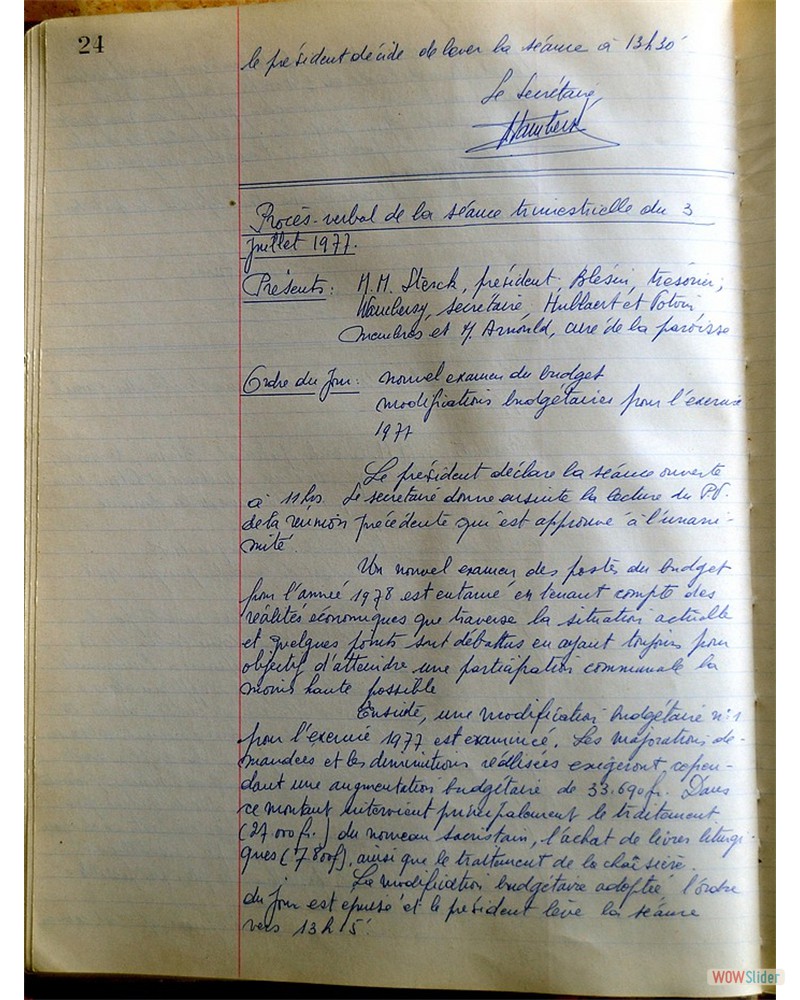 24
le président décide de lever la séance à 13h30'
Le Secrétaire
Procès-verbal de la séance trimestrielle du 3
juillet 1977.
Présents : M.M. Sterck, président, Blésin, trésorier;
Wambersy, secrétaire, Hublaert et Potvin
membres et M. Arnould, curé de la paroisse
Ordre du Jour : nouvel examen du budget
modifications budgétaires pour l'exercice
1977
Le président déclare la séance ouverte
à 11 hrs. Le secrétaire donne ensuite la lecture du P.V.
de la réunion précédente qui est approuvé à l'unani-
mité.
Un nouvel examen des postes du budget
pour l'année 1978 est entamé en tenant compte des
réalités économiques que traverse la situation actuelle
et quelques points sont débattus en ayant toujours pour
objectif d'atteindre une participation communale la
moins haute possible
Ensuite, une modification budgétaire n°1
pour l'exercice 1977 est examinée. Les majorations de-
mandées et les diminutions réalisées exigeront cepen-
dant une augmentation budgétaire de 33.690 fr. Dans
ce montant intervient principalement le traitement
(27.000 fr.) du nouveau sacristain, l'achat de livres liturgi-
ques (7.800f), ainsi que le traitement de la chaisière.
La modification budgétaire adoptée, l'ordre
du jour est épuisé et le président lève la séance
vers 13h 5'.
WOWSlider